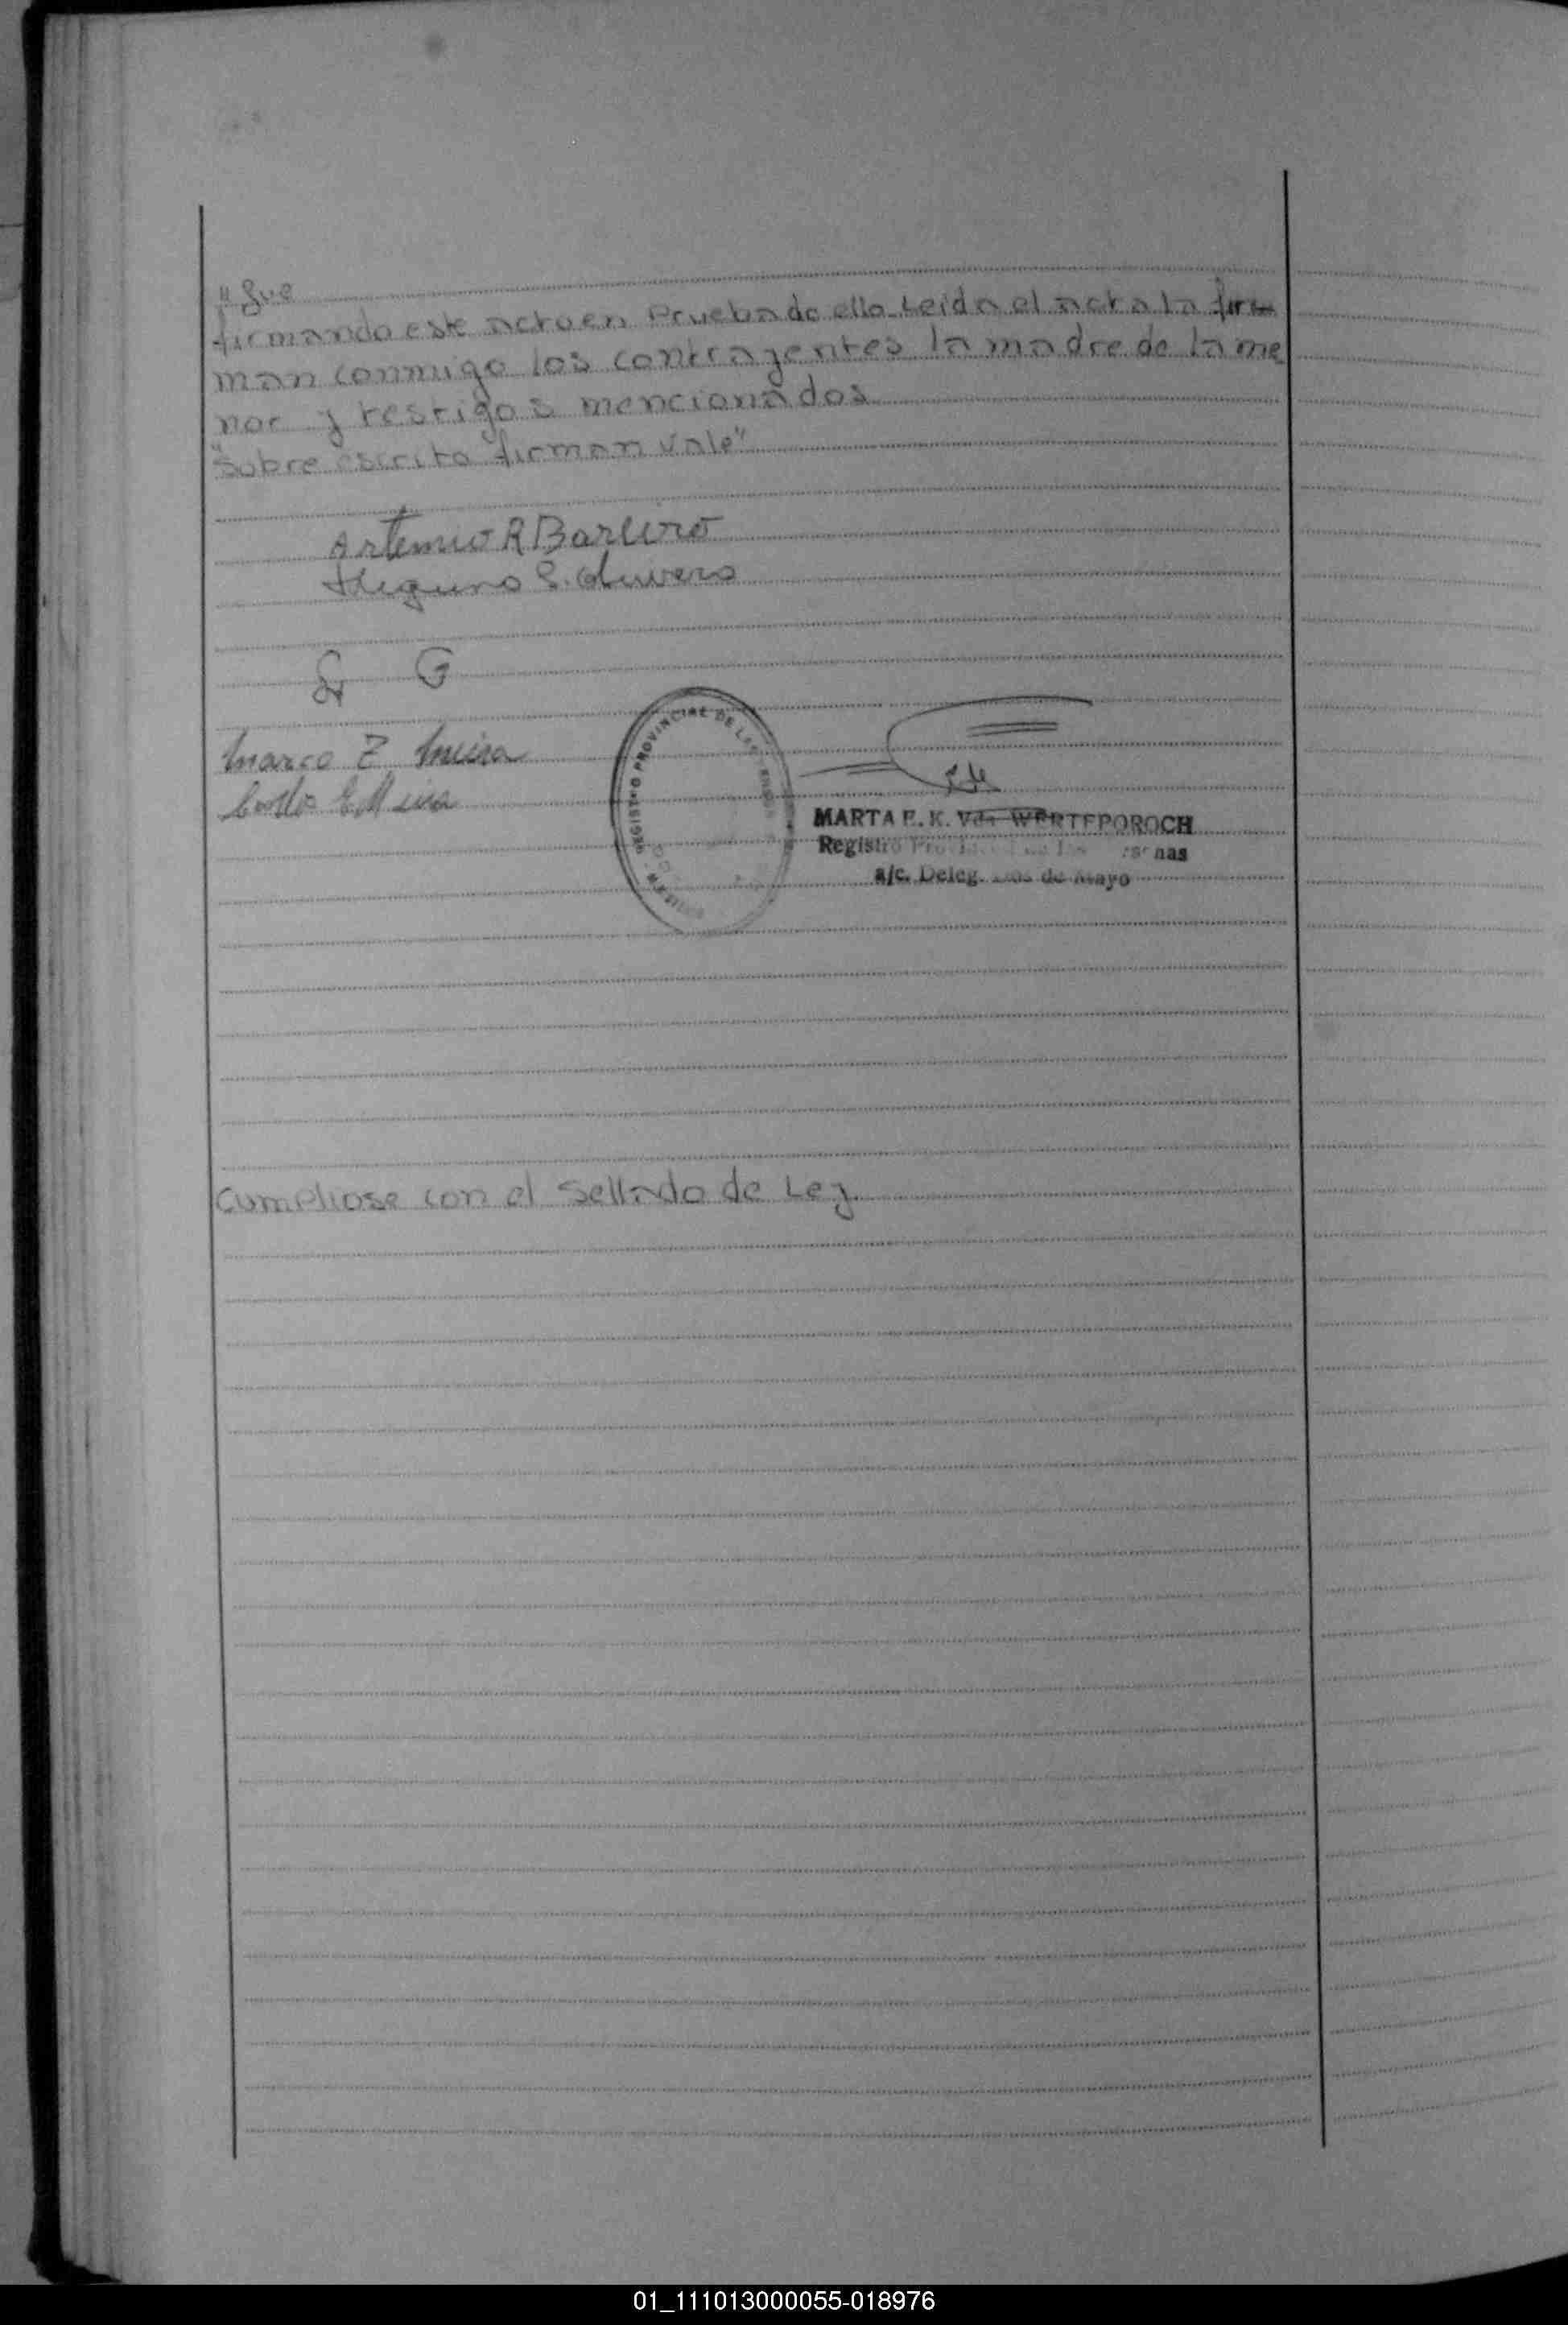 "Gue
firmando este acto en Prueba de ello Leida el acta la fir
man conmigo los contrayentes la madre de la me
nor y testigos mencionados
"Sobre escrito firman vale"
Artemio R Barreiro
S. Olivero
S G
Marco Z
REGISTRO PROVINCIAL DE LAS
MARTA E. K. Vda WERTEPOROCH
Registro
a/c. Deleg. Dos de Mayo
Cumpliose con el Sellado de Ley
01_111013000055-018976